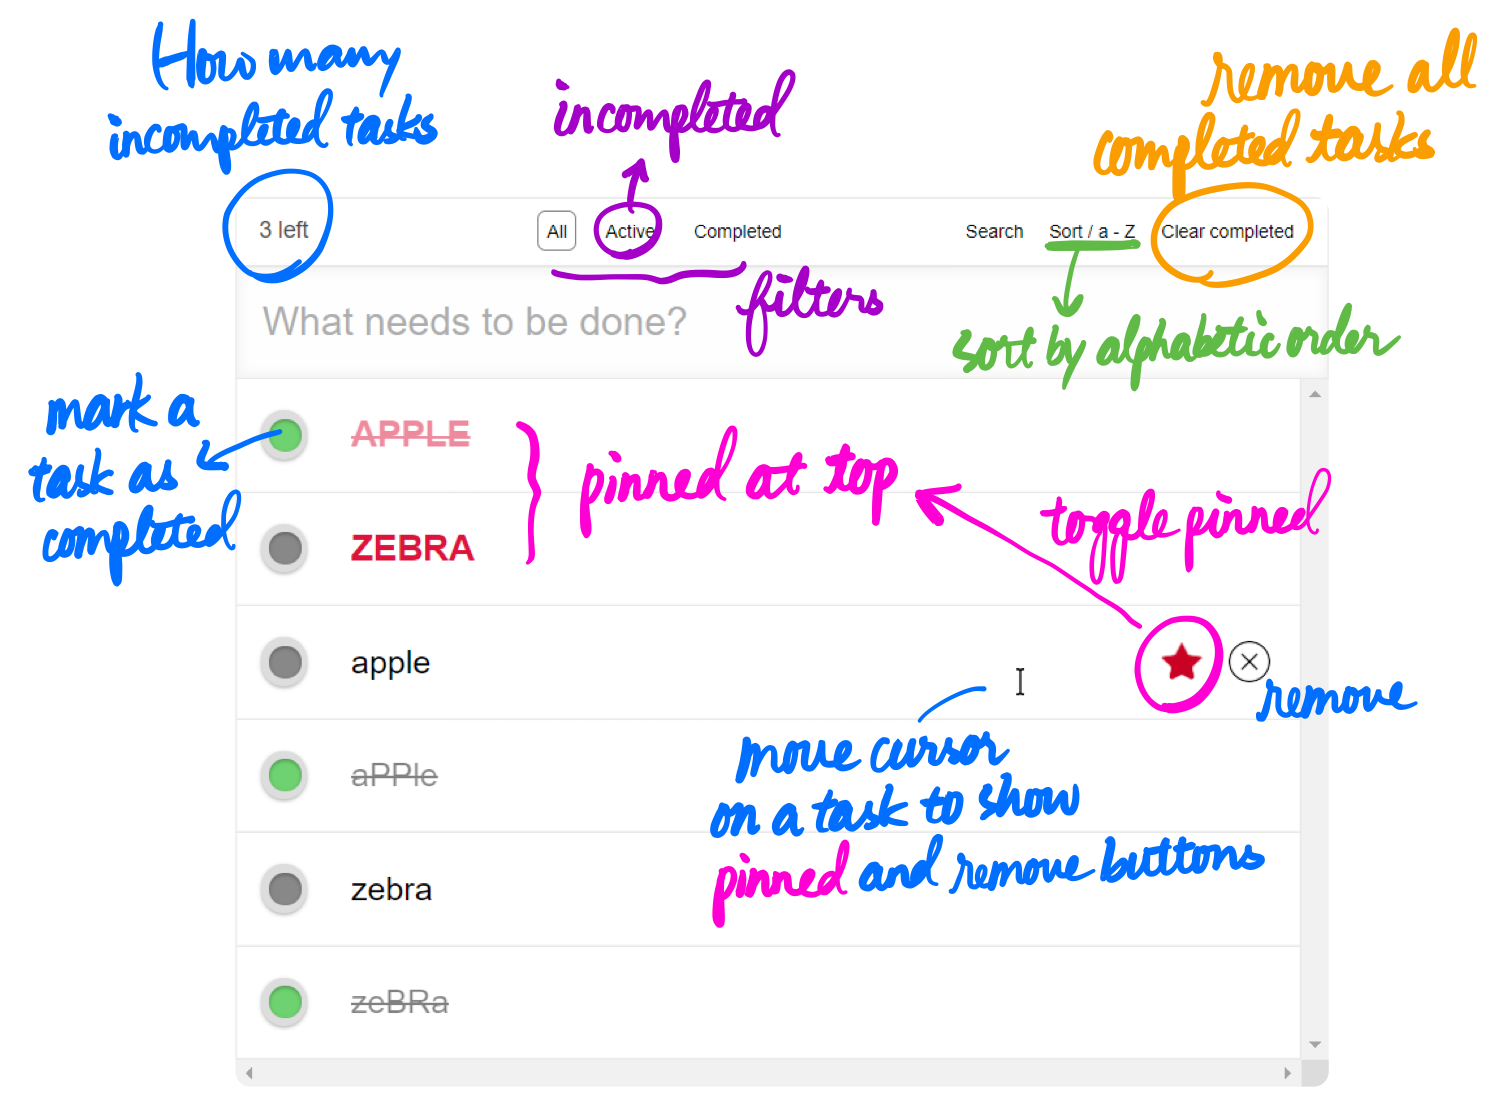 How many
incompleted tasks
incompleted
remove all
completed tasks
3 left
All Active Completed
Search Sort / a - Z Clear completed
filters
What needs to be done?
sort by alphabetic order
mark a
task as
completed
APPLE
pinned at top
toggle pinned
ZEBRA
apple
remove
move cursor
on a task to show
pinned and remove buttons
aPPle
zebra
zeBRa